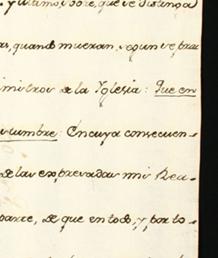 y ultimo, sobre, que se distinga
as, quando mueran, segun se prac
inistros de la Iglesia: Que en
stumbre: En cuya consecuen-
de las expresadas mis Rea-
parte, de que en todo, y por to-